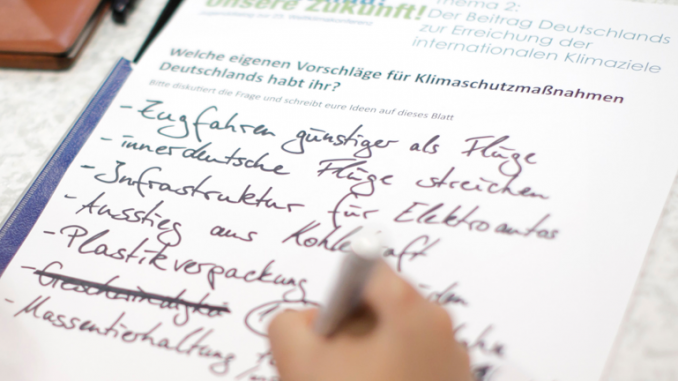 unsere Zukunft!
Thema 2:
Der Beitrag Deutschlands
zur Erreichung der
internationalen Klimaziele
Welche eigenen Vorschläge für Klimaschutzmaßnahmen
Deutschlands habt ihr?
Bitte diskutiert die Frage und schreibt eure Ideen auf dieses Blatt
- Zugfahren günstiger als Flüge
- innerdeutsche Flüge streichen
- Infrastruktur für Elektroautos
- Ausstieg aus
- Plastikverpackung
- Geschwindigkei
- Massentierhaltung